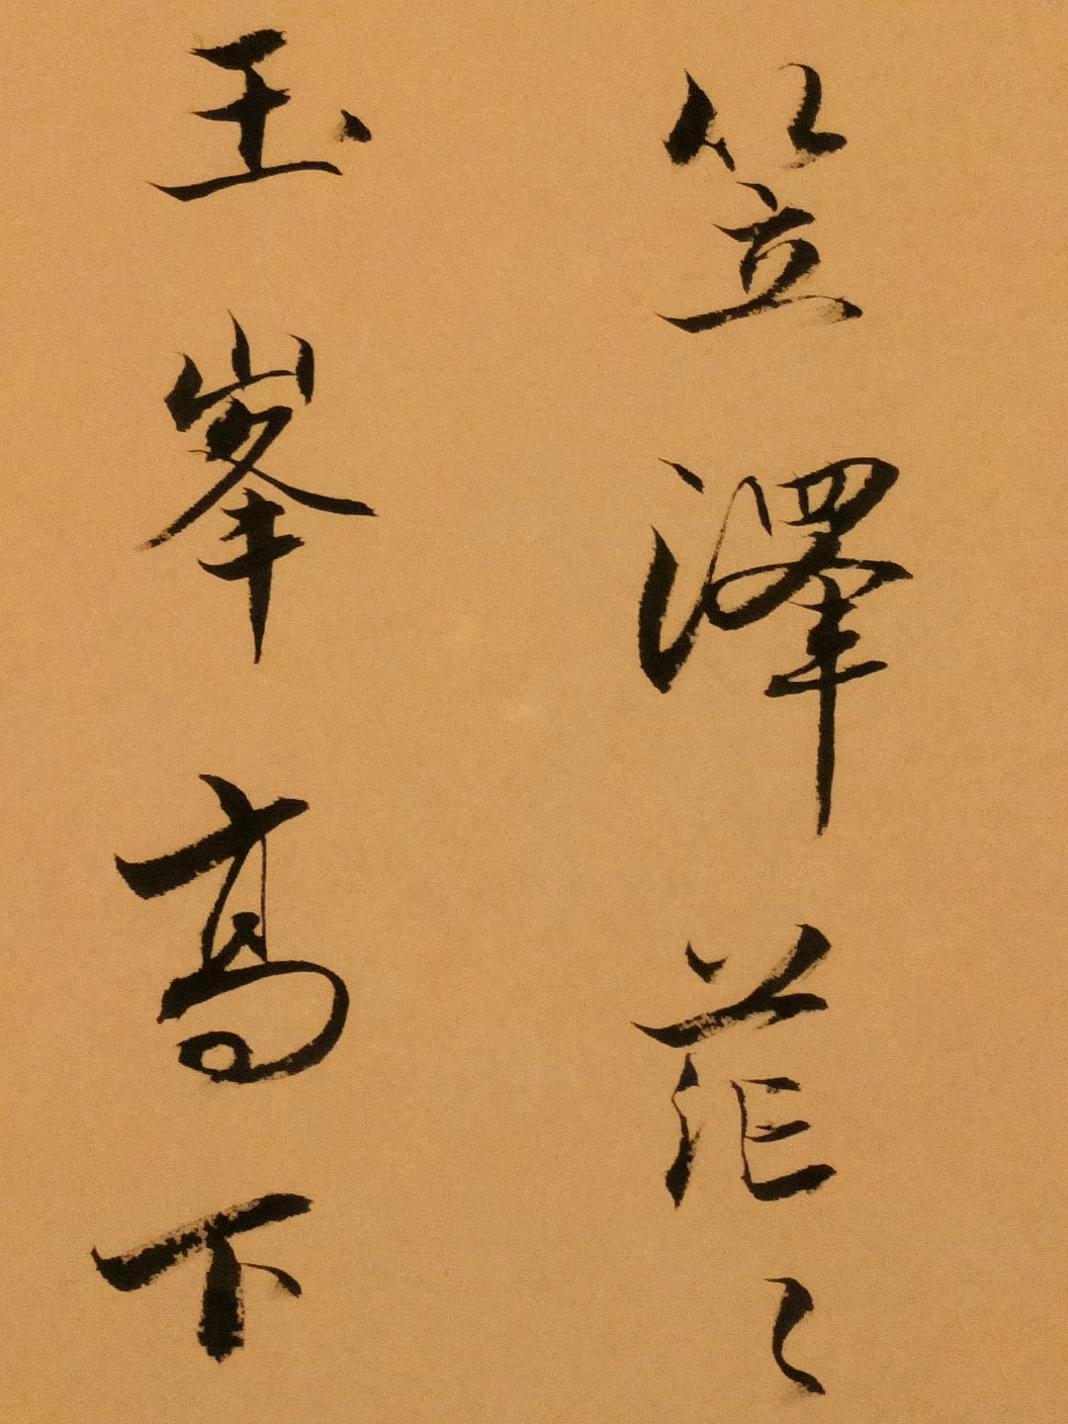 笠澤茫〻
玉峯高下